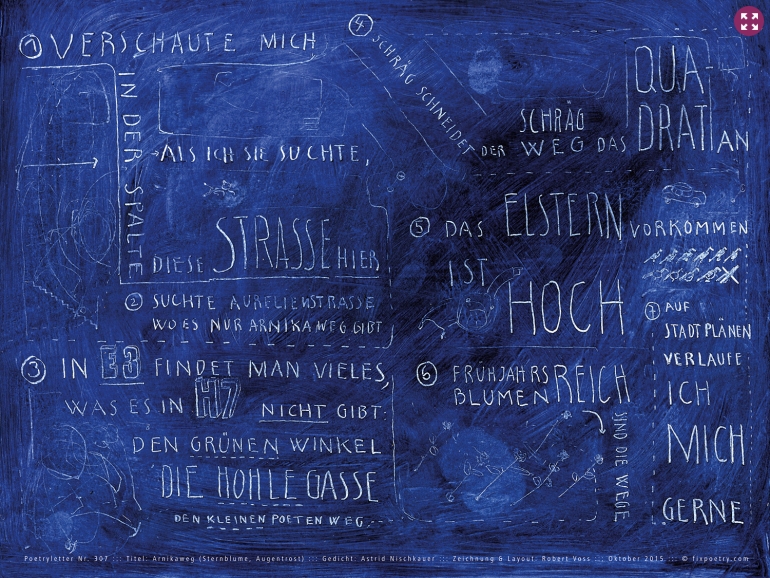 1 VERSCHAUTE MICH
IN DER SPALTE
ALS ICH SIE SUCHTE,
DIESE STRASSE HIER
2 SUCHTE AURELIENSTRASSE,
WO ES NUR ARNIKAWEG GIBT
3 IN E3 FINDET MAN VIELES,
WAS ES IN H7 NICHT GIBT:
DEN GRÜNEN WINKEL
DIE HOHLE GASSE
DEN KLEINEN POETEN WEG
4 SCHRÄG SCHNEIDET
DER SCHRÄG WEG DAS QUA-
DRATI AN
5 DAS ELSTERNVORKOMMEN
IST
HOCH
6 FRÜHJAHRS
BLUMEN REICH
SIND DIE WEGE
7 AUF
STADTPLÄNEN
VERLAUFE
ICH
MICH
GERNE
Poetryletter Nr. 307 ::: Titel: Arnikaweg (Sternblume, Augentrost) ::: Gedicht: Astrid Nischkauer ::: Zeichnung & Layout: Robert Voss ::: Oktober 2015 ::: © fixpoetry.com